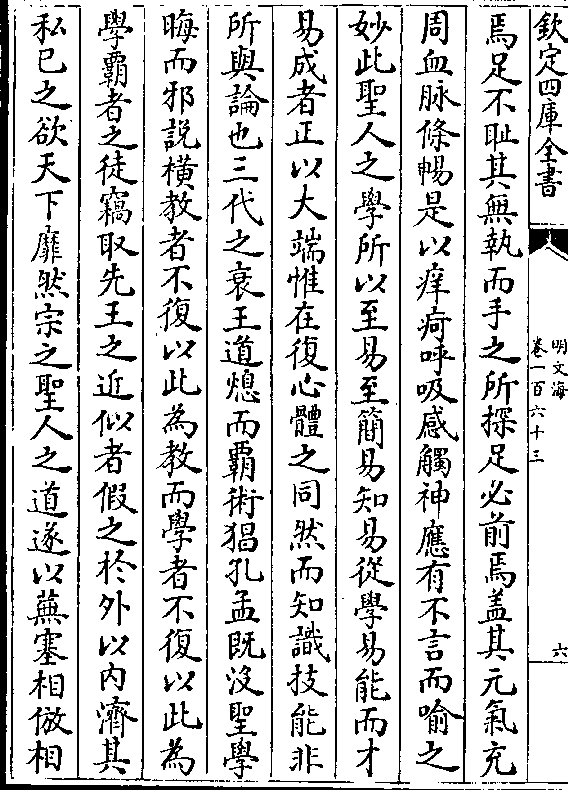 欽定四庫全書
明文海
卷一百六十三
六
焉足不耻其無執而手之所探足必前焉盖其元氣充
周血脉條暢是以痒疴呼吸感觸神應有不言而喻之
妙此聖人之學所以至易至簡易知易從學易能而才
易成者正以大端惟在復心體之同然而知識技能非
所與論也三代之衰王道熄而霸術猖孔孟既没聖學
晦而邪説橫教者不復以此為教而學者不復以此為
學霸者之徒竊取先王之近似者假之於外以内濟其
私已之欲天下靡然宗之聖人之道遂以蕪塞相倣相